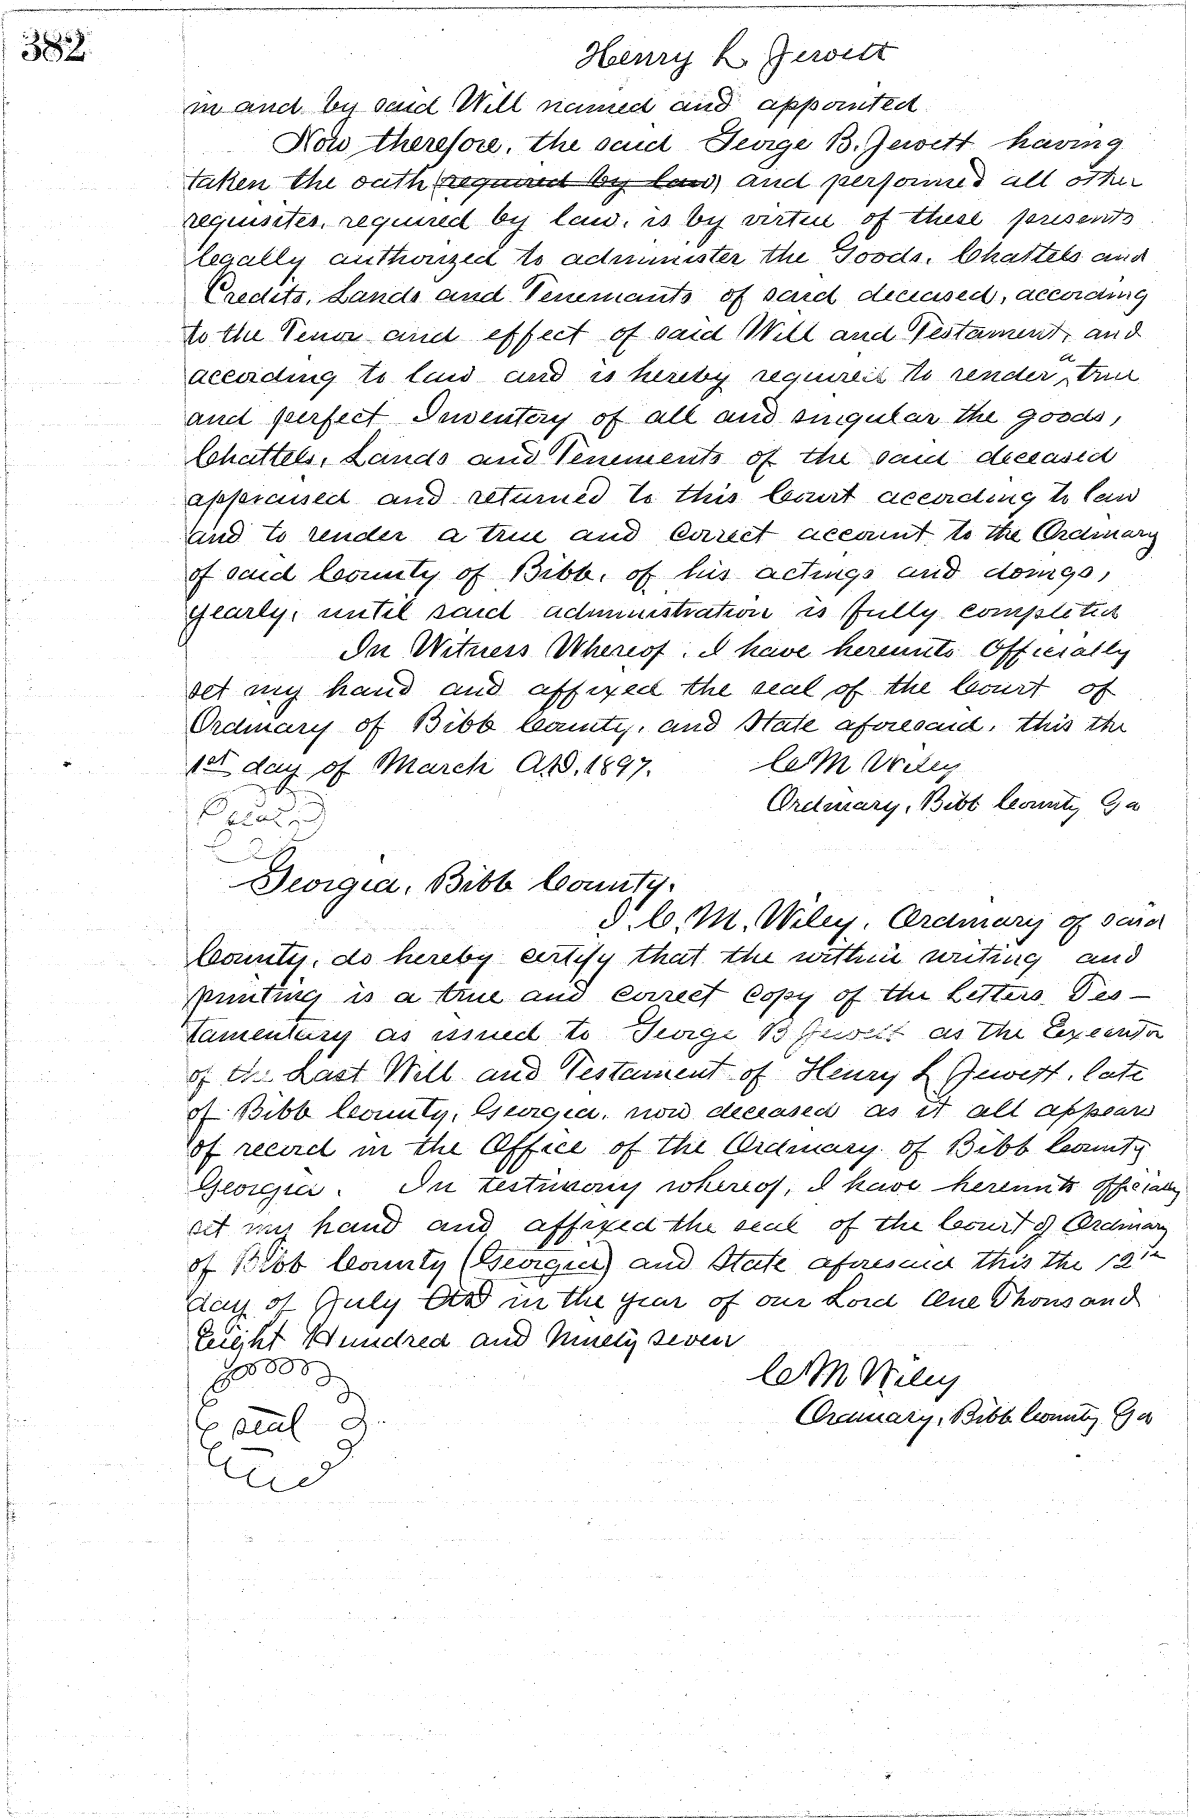 382
Henry L. Jewett
in and by said Will named and appointed
Now therefore, the said George B. Jewett having
taken the oath (required by law) and performed all other
requisites, required by law, is by virtue of these presents
legally authorized to administer the Goods, Chattels and
Credits, Lands and Tenemants of said deceased, according
to the Tenor and effect of said Will and Testament, and
according to law and is hereby required to render a true
and perfect Inventory of all and singular the goods,
Chattels, Lands and Tenements of the said deceased
appraised and returned to this Court according to law
and to render a true and Correct account to the Ordinary
of said County of Bibb, of his actings and doings,
yearly, until said administration is fully completed
In Witness Whereof, I have hereunto Officially
set my hand and affixed the seal of the Court of
Ordinary of Bibb County, and State aforesaid, this the
1st day of March A.D. 1897. C M Wiley
seal Ordinary, Bibb County Ga
Georgia, Bibb County.
I, C. M. Wiley, Ordinary of said
County, do hereby certify that the within writing and
printing is a true and correct Copy of the Letters Tes-
tamentary as issued to George B Jewett as the Executor
of the Last Will and Testament of Henry L Jewett, late
of Bibb County, Georgia, now deceased as it all appears
of record in the Office of the Ordinary of Bibb County
Georgia. In testimony whereof, I have hereunto officially
set my hand and affixed the seal of the Court of Ordinary
of Bibb County (Georgia) and State aforesaid this the 12th
day of July AD in the year of our Lord One Thousand
Eight Hundred and Ninety seven
C M Wiley
seal Ordinary, Bibb County Ga